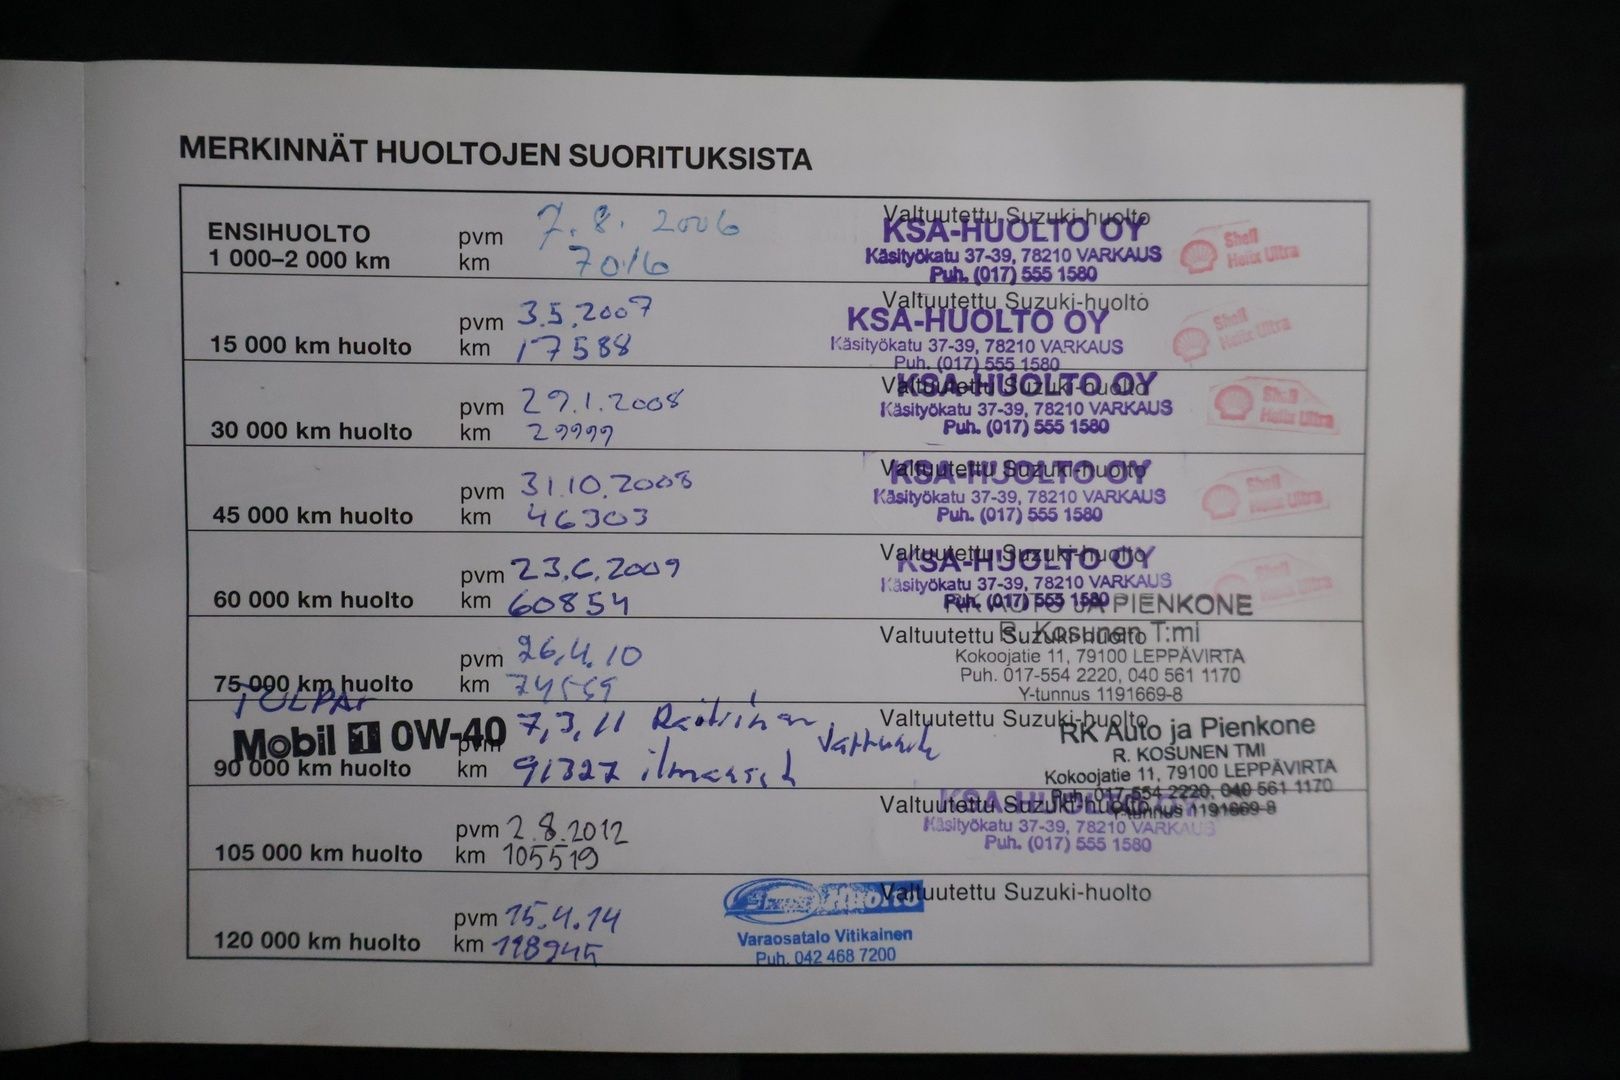 MERKINNÄT HUOLTOJEN SUORITUKSISTA
ENSIHUOLTO
1 000–2 000 km
pvm 7.8.2006
km 7016
Valtuutettu Suzuki-huolto
KSA-HUOLTO OY
Käsityökatu 37-39, 78210 VARKAUS
Puh. (017) 555 1580
Shell
Helix Ultra
15 000 km huolto
pvm 3.5.2007
km 17588
Valtuutettu Suzuki-huolto
KSA-HUOLTO OY
Käsityökatu 37-39, 78210 VARKAUS
Puh. (017) 555 1580
Shell
Helix Ultra
30 000 km huolto
pvm 29.1.2008
km 29999
Valtuutettu Suzuki-huolto
KSA-HUOLTO OY
Käsityökatu 37-39, 78210 VARKAUS
Puh. (017) 555 1580
Shell
Helix Ultra
45 000 km huolto
pvm 31.10.2008
km 46303
Valtuutettu Suzuki-huolto
KSA-HUOLTO OY
Käsityökatu 37-39, 78210 VARKAUS
Puh. (017) 555 1580
Shell
Helix Ultra
60 000 km huolto
pvm 23.6.2009
km 60854
Valtuutettu Suzuki-huolto
KSA-HUOLTO OY
Käsityökatu 37-39, 78210 VARKAUS
Puh. (017) 555 1580
Shell
Helix Ultra
75 000 km huolto
pvm 26.4.10
km
Valtuutettu Suzuki-huolto
RK AUTO JA PIENKONE
R. Kosunen T:mi
Kokoojatie 11, 79100 LEPPÄVIRTA
Puh. 017-554 2220, 040 561 1170
Y-tunnus 1191669-8
Mobil 1 0W-40
90 000 km huolto
pvm 7.3.11
km 91327
Valtuutettu Suzuki-huolto
RK Auto ja Pienkone
R. KOSUNEN TMI
Kokoojatie 11, 79100 LEPPÄVIRTA
Puh. 017-554 2220, 040 561 1170
Y-tunnus 1191669-8
105 000 km huolto
pvm 2.8.2012
km 105519
Valtuutettu Suzuki-huolto
KSA-HUOLTO OY
Käsityökatu 37-39, 78210 VARKAUS
Puh. (017) 555 1580
120 000 km huolto
pvm 15.4.14
km 118945
Valtuutettu Suzuki-huolto
Huolto
Varaosatalo Vitikainen
Puh. 042 468 7200